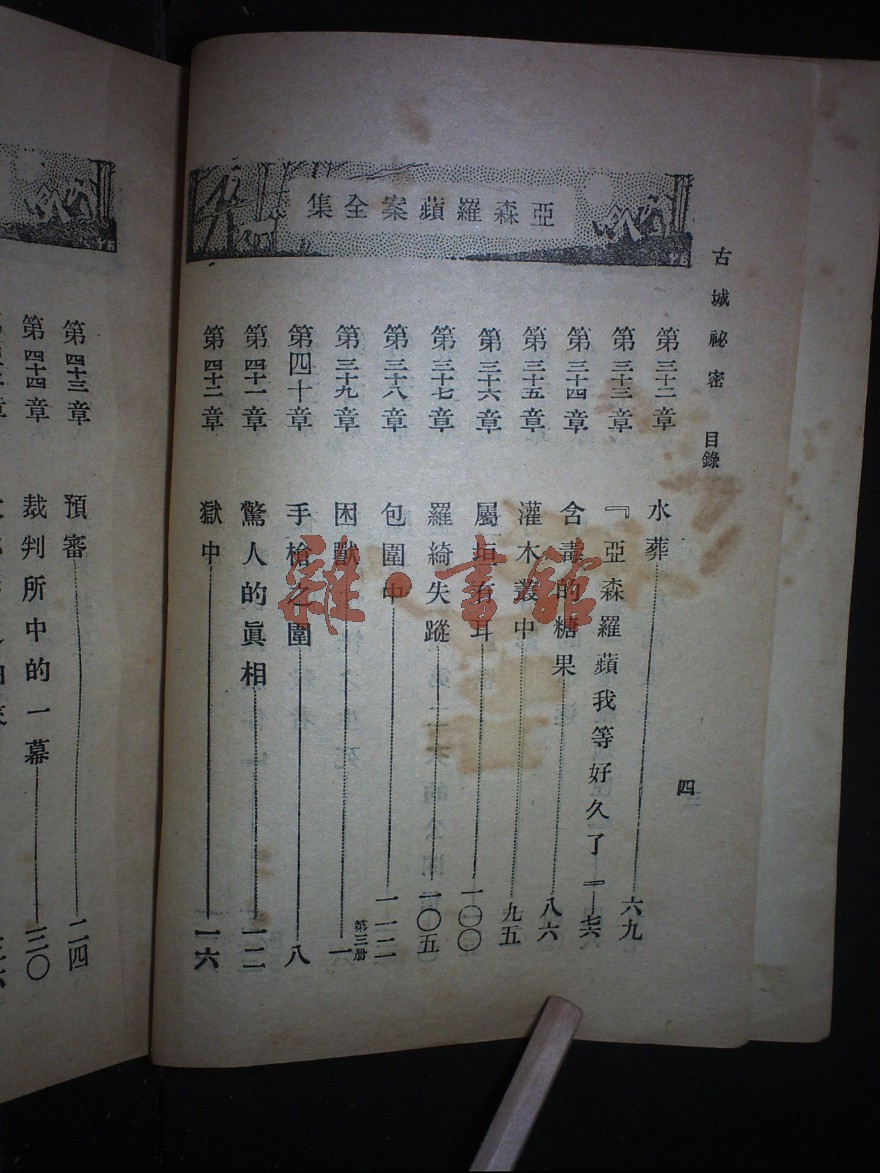 亞森羅蘋案全集
古城祕密 目錄 四
第三十二章 水葬 六九
第三十三章 『亞森羅蘋我等好久了』 七六
第三十四章 含毒的糖果 八六
第三十五章 灌木叢中 九五
第三十六章 屬垣有耳 一〇〇
第三十七章 羅綺失蹤 一〇五
第三十八章 包圍中 一一二
第三十九章 困獸 第三册 一
第四十章 手槍之圍 八
第四十一章 驚人的眞相 一二
第四十二章 獄中 一六
第四十三章 預審 二四
第四十四章 裁判所中的一幕 三〇
雜·書館